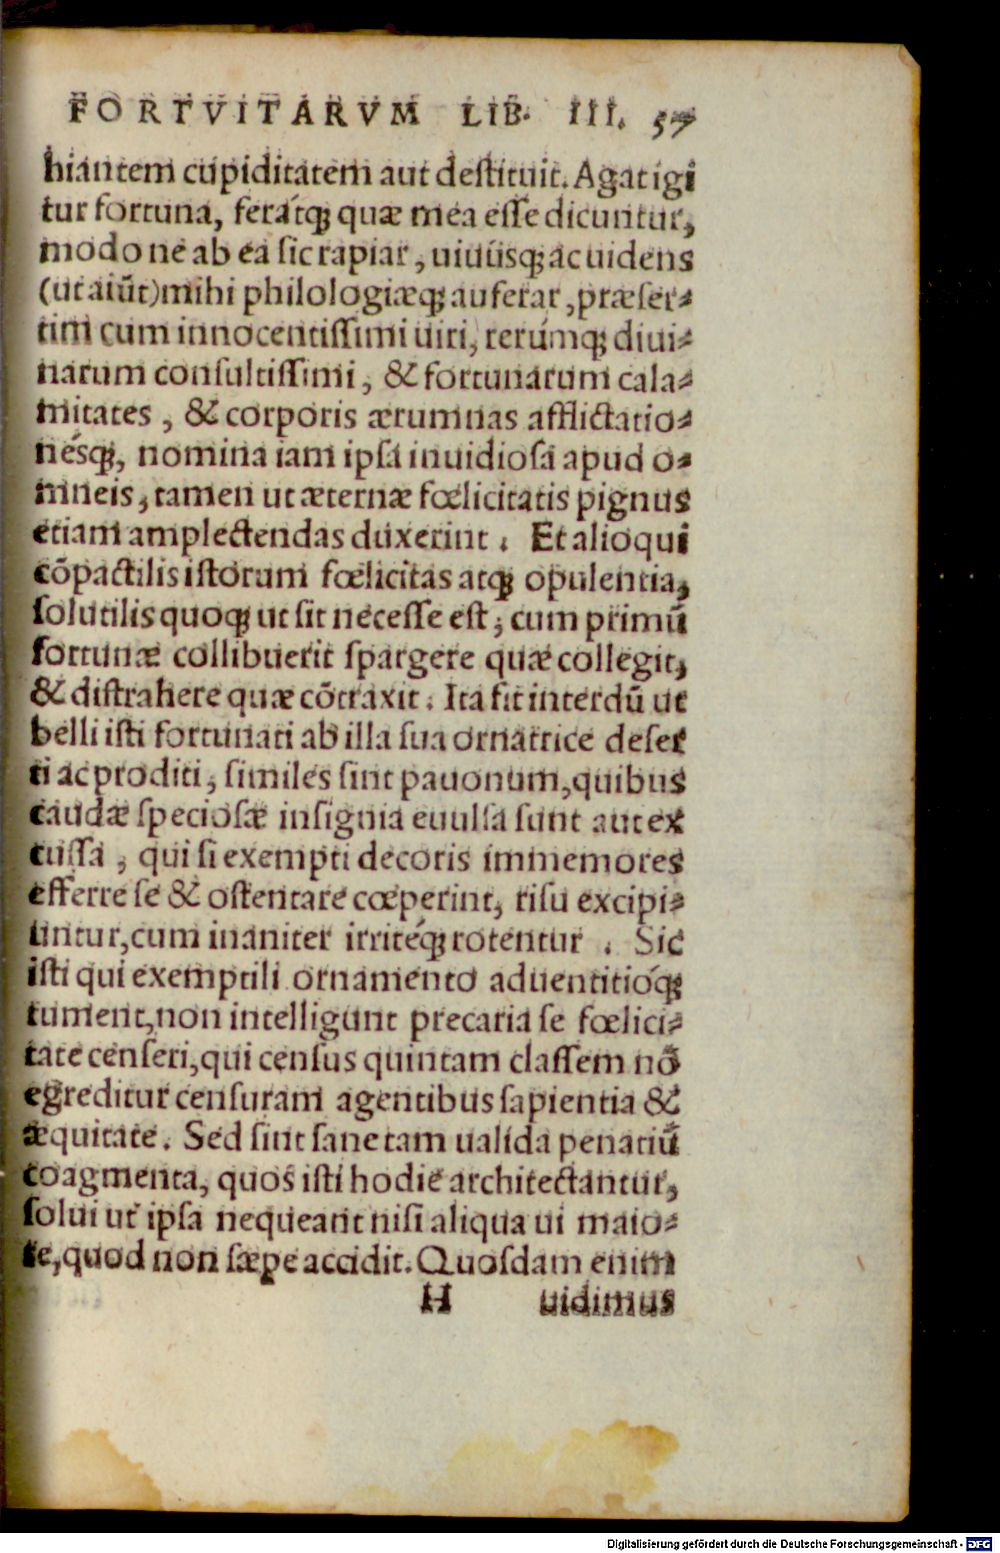 FORTVITARVM LIB. III. 57
hiantem cupiditatem aut destituit. Agat igi
tur fortuna, ferátq; quæ mea esse dicuntur,
modo ne ab ea sic rapiar, uiuúsq; ac uidens
(ut aiũt) mihi philologiæq; auferar, præser-
tim cum innocentissimi uiri, rerúmq; diui-
narum consultissimi, & fortunarum cala-
mitates, & corporis ærumnas afflictatio-
nésq;, nomina iam ipsa inuidiosa apud o-
mneis, tamen ut æternæ fœlicitatis pignus
etiam amplectendas duxerint. Et alioqui
cõpactilis istorum fœlicitas atq; opulentia,
solutilis quoq; ut sit necesse est, cum primũ
fortunæ collibuerit spargere quæ collegit,
& distrahere quæ cõtraxit. Ita fit interdũ ut
belli isti fortunati ab illa sua ornatrice deser
ti ac proditi, similes sint pauonum, quibus
caudæ speciosæ insignia euulsa sunt aut ex
cussa, qui si exempti decoris immemores
efferre se & ostentare cœperint, risu excipi-
untur, cum inaniter irritéq; rotentur. Sic
isti qui exemptili ornamento aduentitióq;
tument, non intelligunt precaria se fœlici-
tate censeri, qui census quintam classem nõ
egreditur censuram agentibus sapientia &
æquitate. Sed sint sane tam ualida penatiũ
coagmenta, quos isti hodie architectantur,
solui ut ipsa nequeant nisi aliqua ui maio-
re, quod non sæpe accidit. Quosdam enim
H uidimus
Digitalisierung gefördert durch die Deutsche Forschungsgemeinschaft - DFG